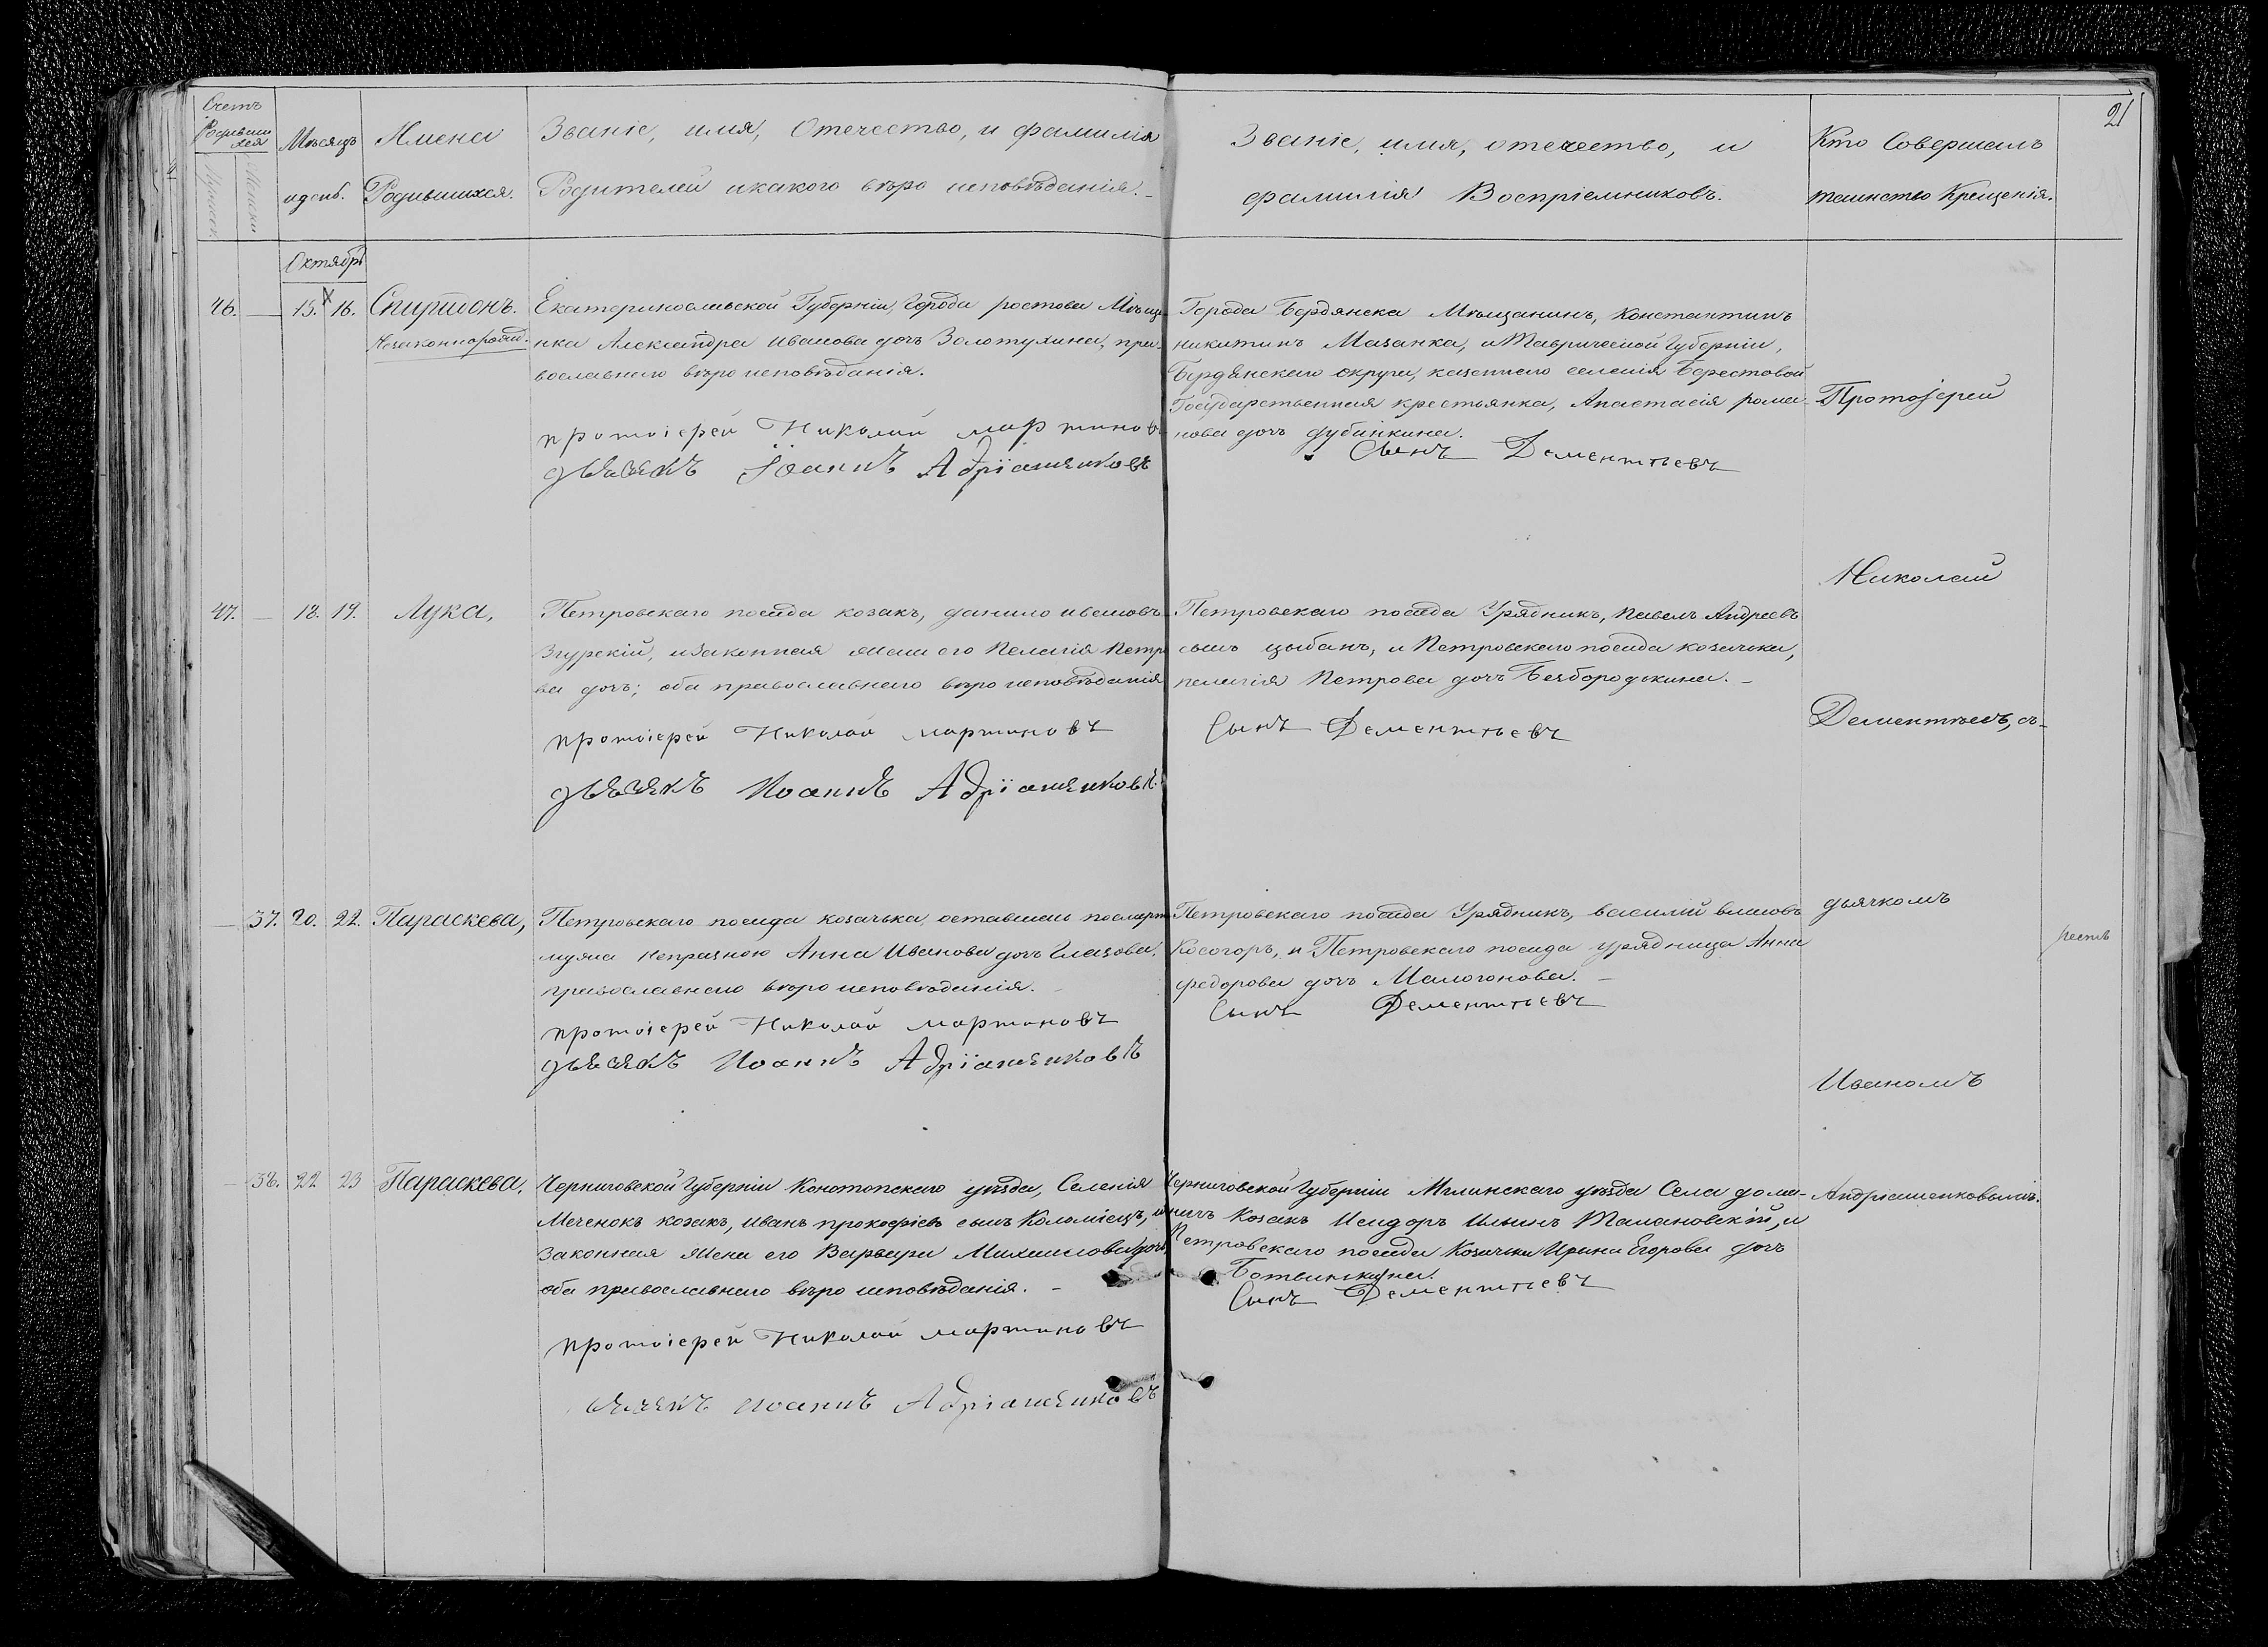 21
Счетъ
Родивших
хся
Мужеска
Женска
Мѣсяцъ
и день.
Имена
Родившихся.
Званіе, имя, Отечество, и фамилія
Родителей икакого вѣро исповѣданія.-
Званіе, имя, отечество, и
фамилія Воспріемниковъ.
Кто Совершалъ
таинство Крещенія.
Октябрь
46. — 15. 16. Спиридонъ.
Незаконнорожд.
Екатеринославской Губерніи, Города ростова Мѣща-
нка Александра иванова дочь Золотухина, пра-
вославнаго вѣро исповѣданія.
протоіерей Николай мартиновъ
дьячекъ Іоаннъ Адріашенковъ
Города Бердянска Мѣщанинъ, Константинъ
никитинъ Мазанка, и Таврической Губерніи,
Бердянскаго округа, казеннаго селенія Берестовой
Государственная крестьянка, Анастасія рома-
нова дочь дубинкина.
Сынъ Дементьевъ
Протоіерей
Николай
47. — 18. 19. Лука,
Петровскаго посада козакъ, данило ивановъ
Згурскій, изаконная жена его Пелагія Петро
ва дочь; оба православнаго вѣро исповѣданія
протоіерей Николай мартиновъ
дьячекъ Иоаннъ Адріашенковъ.
Петровскаго посада Урядникъ, павелъ Андреевъ
сынъ цыбань, и Петровскаго посада козачька,
пелагія Петрова дочь Безбородькина. -
Сынъ Дементьевъ
Дементьевъ, съ-
— 37. 20. 22. Параскева,
Петровскаго посада козачька оставшась послѣрт
мужа непразною Анна Иванова дочь Глазова,
православнаго вѣро исповѣданія.
протоіерей Николай мартиновъ
дьячекъ Иоаннъ Адріашенковъ
Петровскаго посада Урядникъ, василій власовъ
Косогоръ, и Петровскаго посада урядница Анна
федорова дочь Малогонова. -
Сынъ Дементьевъ
дьячкомъ
Иваномъ
— 38. 22 23 Параскева,
Черниговской Губерніи Конотопскаго уѣзда, Селенія
Меченокъ козакъ, иванъ прокофіевъ сынъ Коломіецъ, и
Законная жена его Варвара Михаилова дочь
оба православнаго вѣро исповѣданія. -
протоіерей Николай мартиновъ
дьячекъ иоаннъ Адріашенковъ
Черниговской Губерніи Мглинскаго уѣзда Села дома-
ничъ Козакъ Исидоръ Ильинъ Тамановскій, и
Петровскаго посада Козачка Ирина Егорова дочь
Ботвинькина.
Сынъ Дементьевъ
Андріашенковымъ.